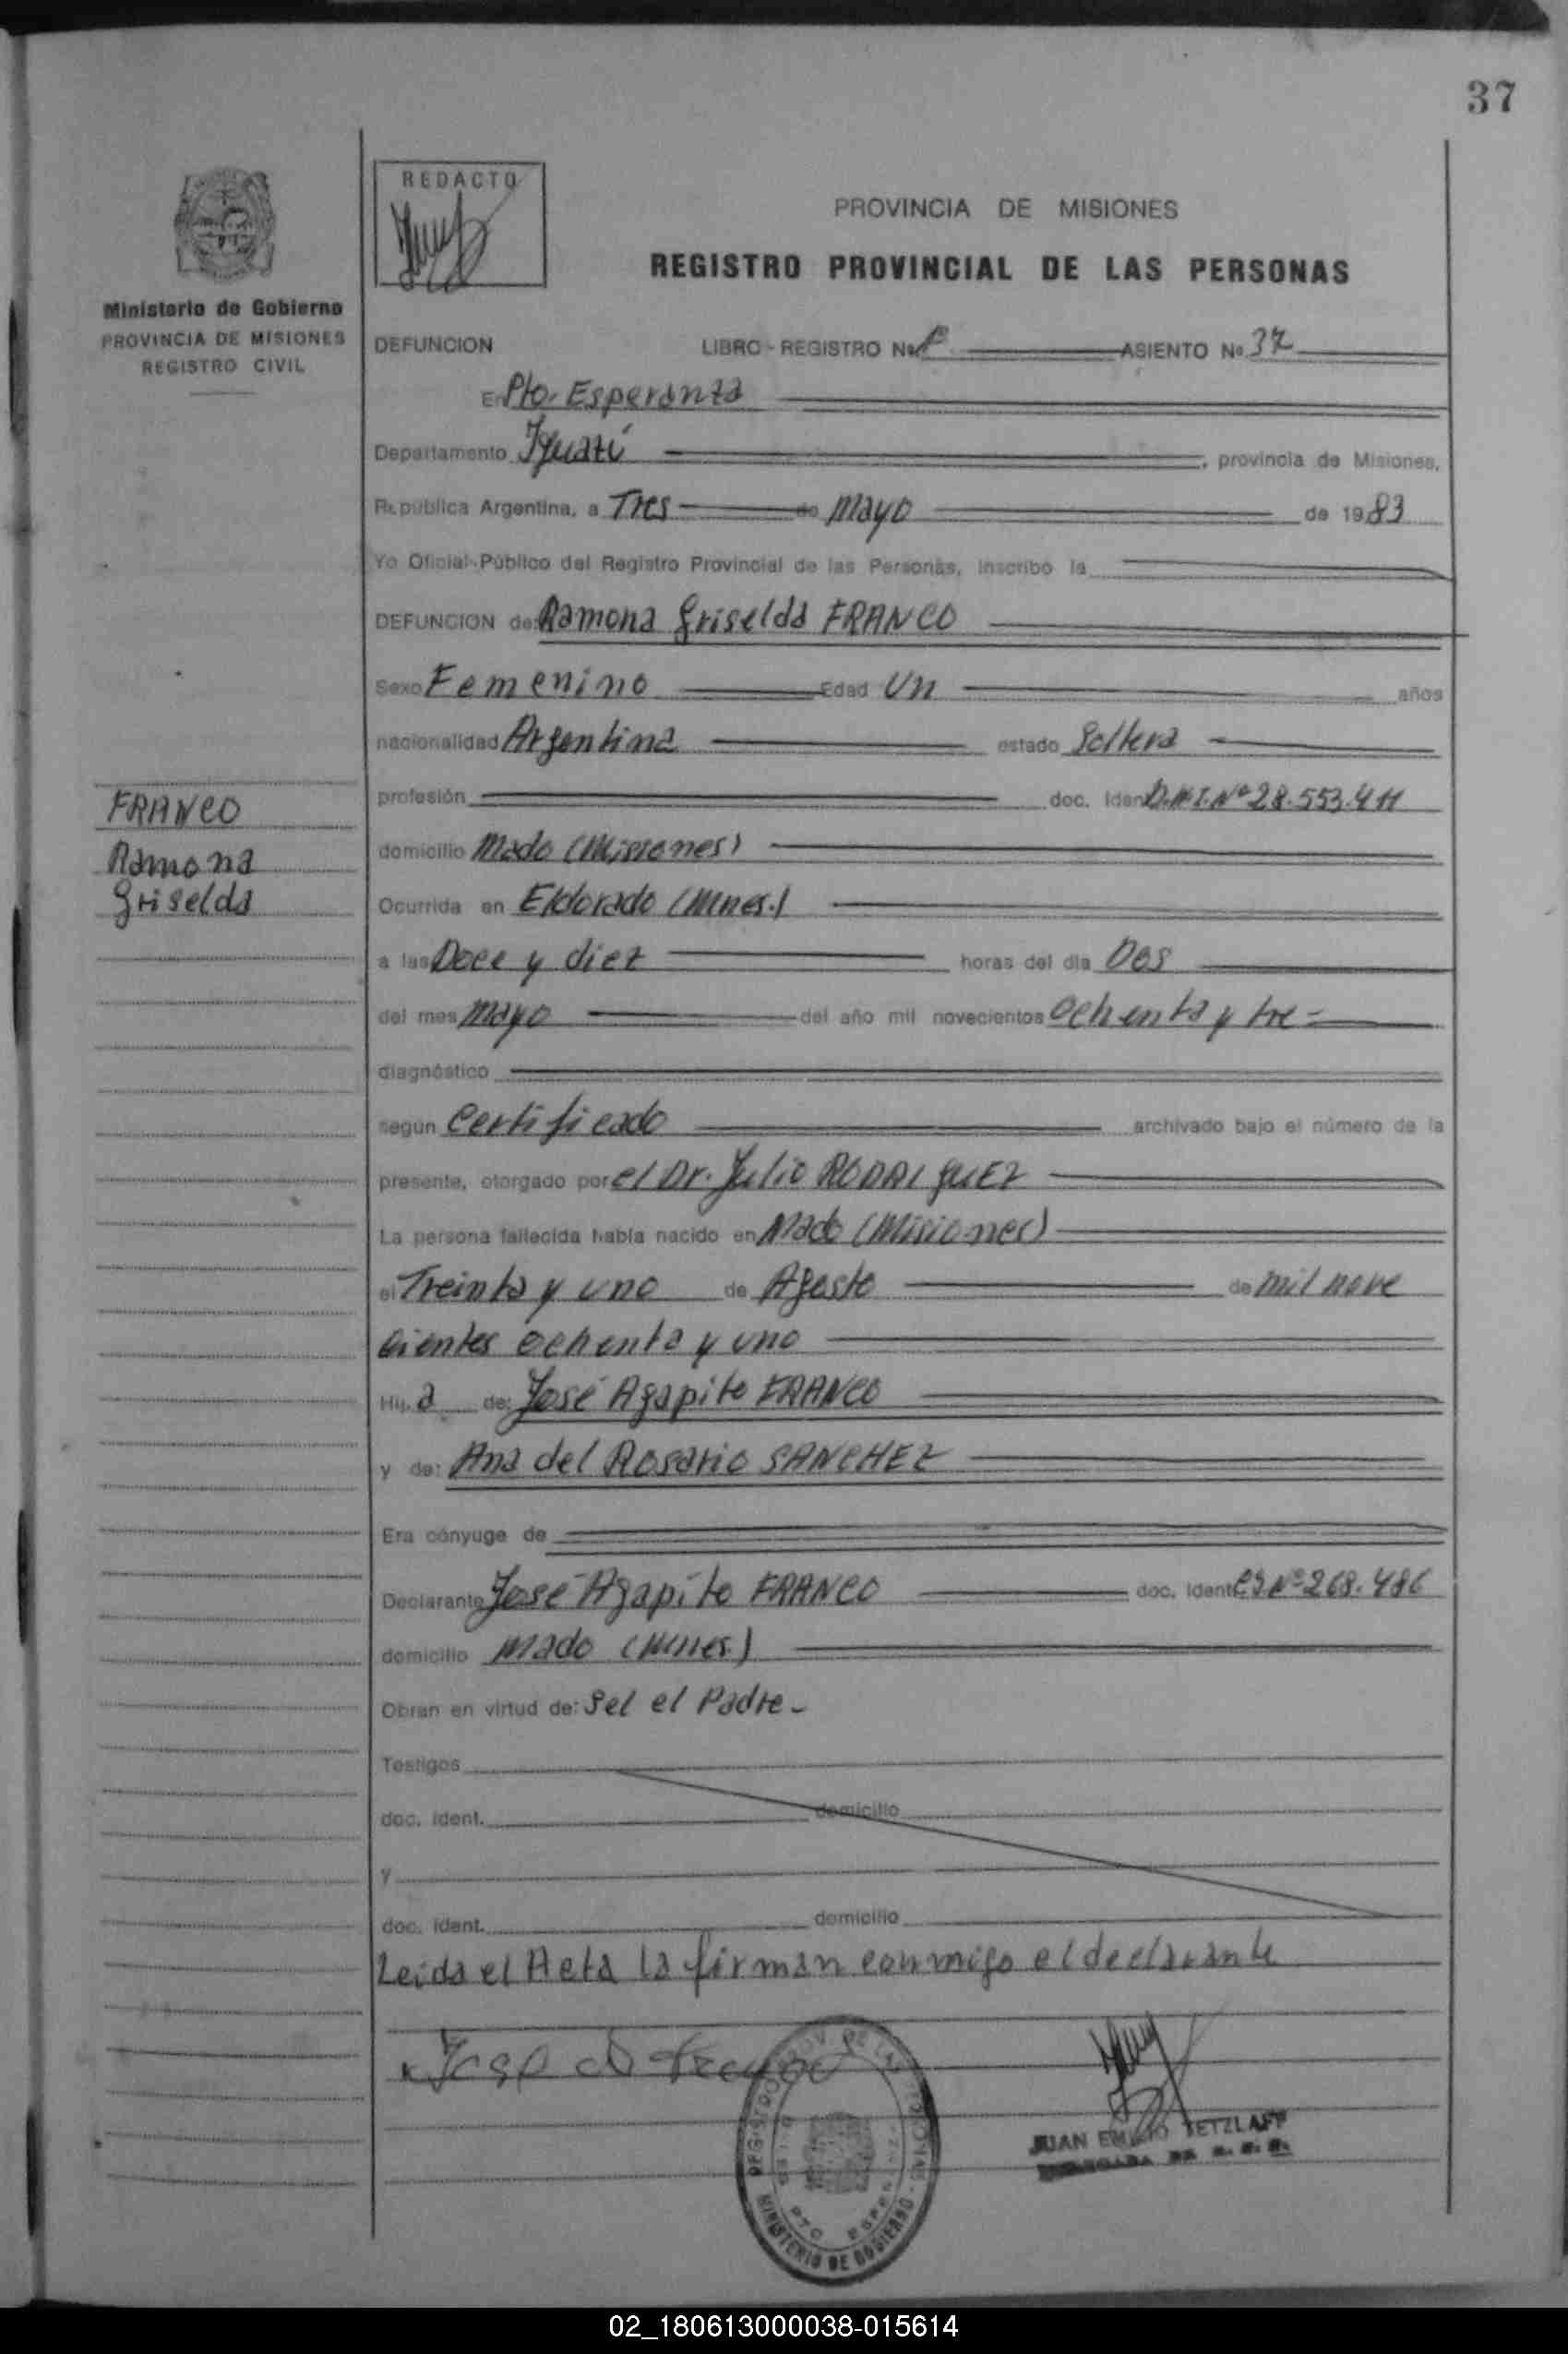 37
REDACTO
PROVINCIA DE MISIONES
REGISTRO PROVINCIAL DE LAS PERSONAS
Ministerio de Gobierno
PROVINCIA DE MISIONES
REGISTRO CIVIL
DEFUNCION LIBRO - REGISTRO Nº ASIENTO Nº 37
En Pto. Esperanza
Departamento Iguazú , provincia de Misiones,
República Argentina, a Tres de Mayo de 1983
Yo Oficial Público del Registro Provincial de las Personas, inscribo la
DEFUNCION de: Ramona Griselda FRANCO
Sexo Femenino Edad Un años
nacionalidad Argentina estado Soltera
profesión doc. Iden D.N.I. Nº 28.553.411
FRANCO
Ramona
Griselda
domicilio Mado (Misiones)
Ocurrida en Eldorado (Mnes.)
a las Doce y diez horas del día Dos
del mes Mayo del año mil novecientos ochenta y tre-
diagnóstico
según Certificado archivado bajo el número de la
presente, otorgado por el Dr. Julio RODRIGUEZ
La persona fallecida había nacido en Mado (Misiones)
el Treinta y uno de Agosto de mil nove
cientos ochenta y uno
Hija de: José Agapito FRANCO
y de: Ana del Rosario SANCHEZ
Era cónyuge de
Declarante José Agapito FRANCO doc. Ident C.I Nº 268.486
domicilio Mado (Mnes.)
Obran en virtud de: Sel el Padre-
Testigos
doc. ident. domicilio
y
doc. ident. domicilio
Leida el Acta la firman conmigo el declarante
JUAN EMILIO TETZLAFF
MINISTERIO DE GOBIERNO
02_180613000038-015614